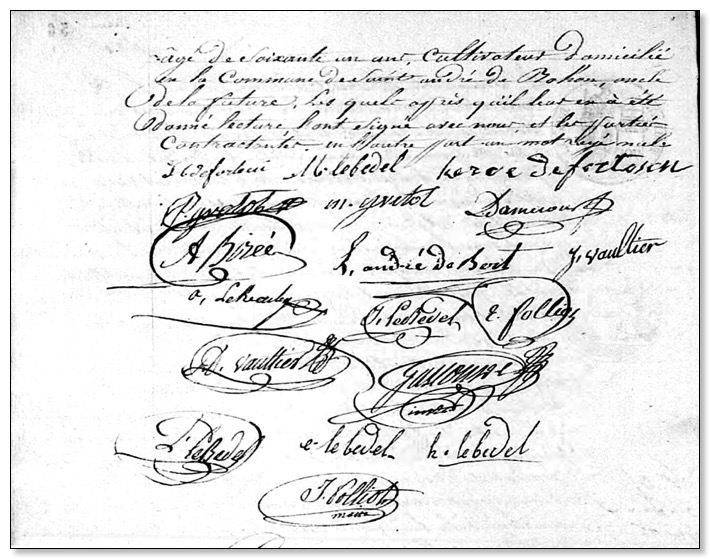 âgé de soixante un ans, cultivateur domicilié
en la Commune de Saint andré de Bohon, oncle
de la future, les quels après qu'il leur en a été
donné lecture, l'ont signé avec nous, et les parties
contractantes un mot rayé nul
M. lebedel herve defortescu
P. yvetot m. yvetot Damecour
A Bizée L. andré de Bort J. vaultier
a. J. Lebedel E. folliot
D. vaultier
L. Lebedel e. lebedel h. lebedel
J. Folliot
maire